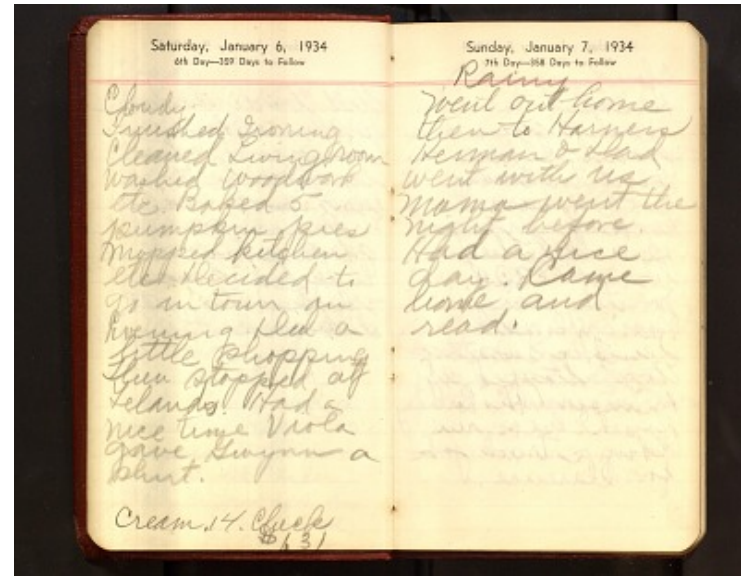 Saturday, January 6, 1934
6th Day—359 Days to Follow
Cloudy
Finished Ironing
Cleaned Livingroom
Washed woodwork
etc. Baked 5
pumpkin pies
Mopped kitchen
etc. Decided to
go in town in
Evening did a
little shopping
then stopped at
Lelands. Had a
nice time Viola
gave Gwynn a
shirt.
Cream .14. Check
Sunday, January 7, 1934
7th Day—358 Days to Follow
Rainy
Went out home
then to Harners
Herman & Dad
went with us
Mama went the
night before.
Had a nice
day. Came
home and
read.